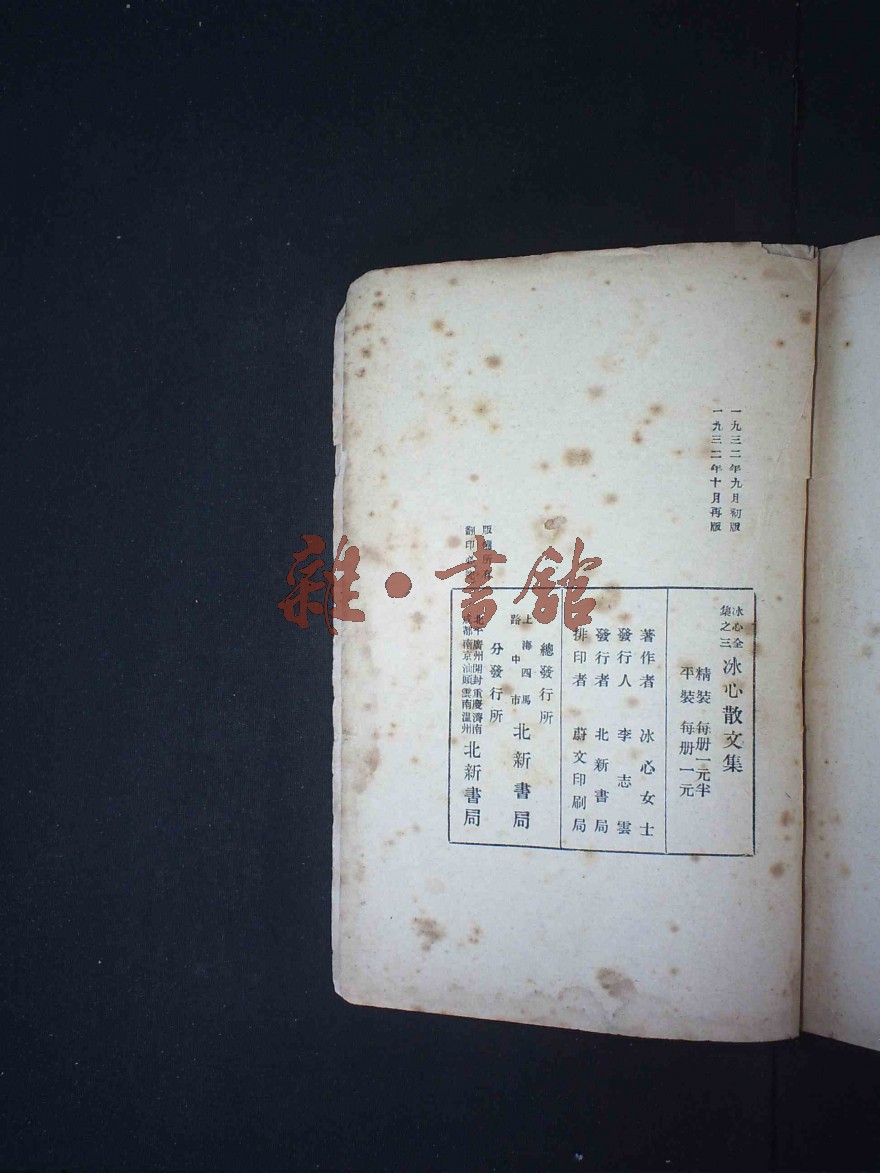 一九三二年九月初版
一九三二年十月再版
冰心全集之三
冰心散文集
精裝 每册一元半
平裝 每册一元
著作者 冰心女士
發行人 李志雲
發行者 北新書局
排印者 蔚文印刷局
總發行所
上海四馬路中市 北新書局
分發行所
北平廣州開封重慶濟南
成都南京汕頭雲南溫州 北新書局
版權所有
翻印必究
雜·書館